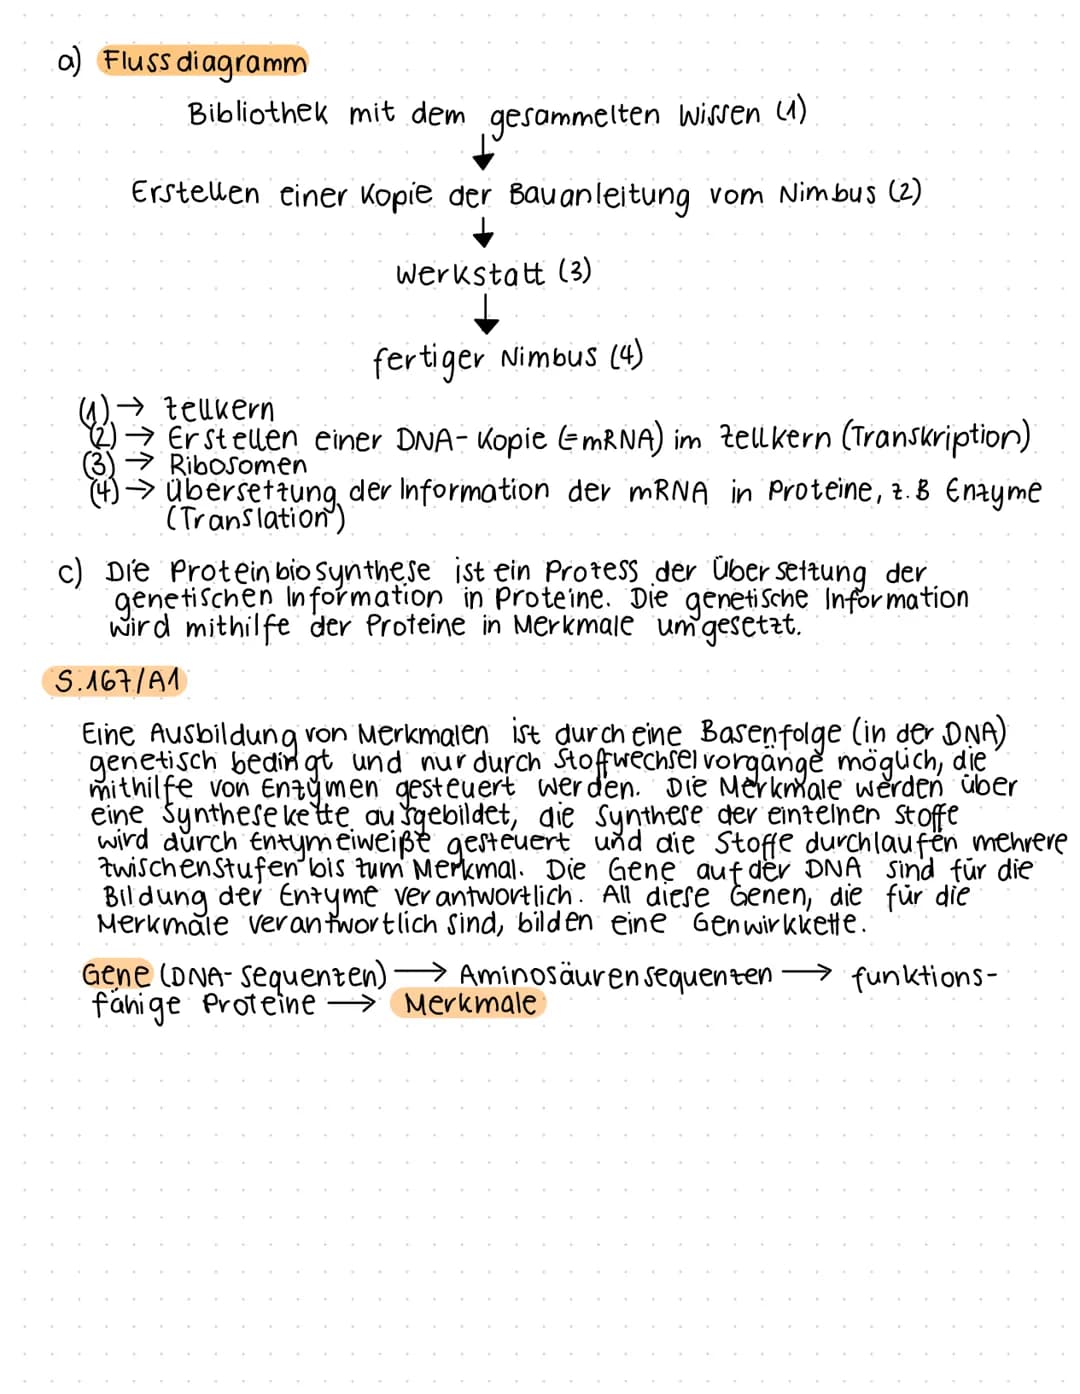 a) Flussdiagramm
Bibliothek mit dem gesammelten Wissen (1)
↓
Erstellen einer Kopie der Bauanleitung vom Nimbus (2)
↓
Werkstatt (3)
↓
fertiger Nimbus (4)
(1) → Zellkern
(2) → Erstellen einer DNA-Kopie (=mRNA) im Zellkern (Transkription)
(3) → Ribosomen
(4) → Übersetzung der Information der mRNA in Proteine, z.B Enzyme
(Translation)
c) Die Proteinbiosynthese ist ein Prozess der Übersetzung der
genetischen Information in Proteine. Die genetische Information
wird mithilfe der Proteine in Merkmale umgesetzt.
S.167/A1
Eine Ausbildung von Merkmalen ist durch eine Basenfolge (in der DNA)
genetisch bedingt und nur durch Stoffwechselvorgänge möglich, die
mithilfe von Enzymen gesteuert werden. Die Merkmale werden über
eine Synthesekette ausgebildet, die Synthese der einzelnen Stoffe
wird durch Enzymeiweiße gesteuert und die Stoffe durchlaufen mehrere
Zwischenstufen bis zum Merkmal. Die Gene auf der DNA sind für die
Bildung der Enzyme verantwortlich. All diese Genen, die für die
Merkmale verantwortlich sind, bilden eine Genwirkkette.
Gene (DNA-Sequenzen) → Aminosäurensequenzen → funktions-
fähige Proteine → Merkmale